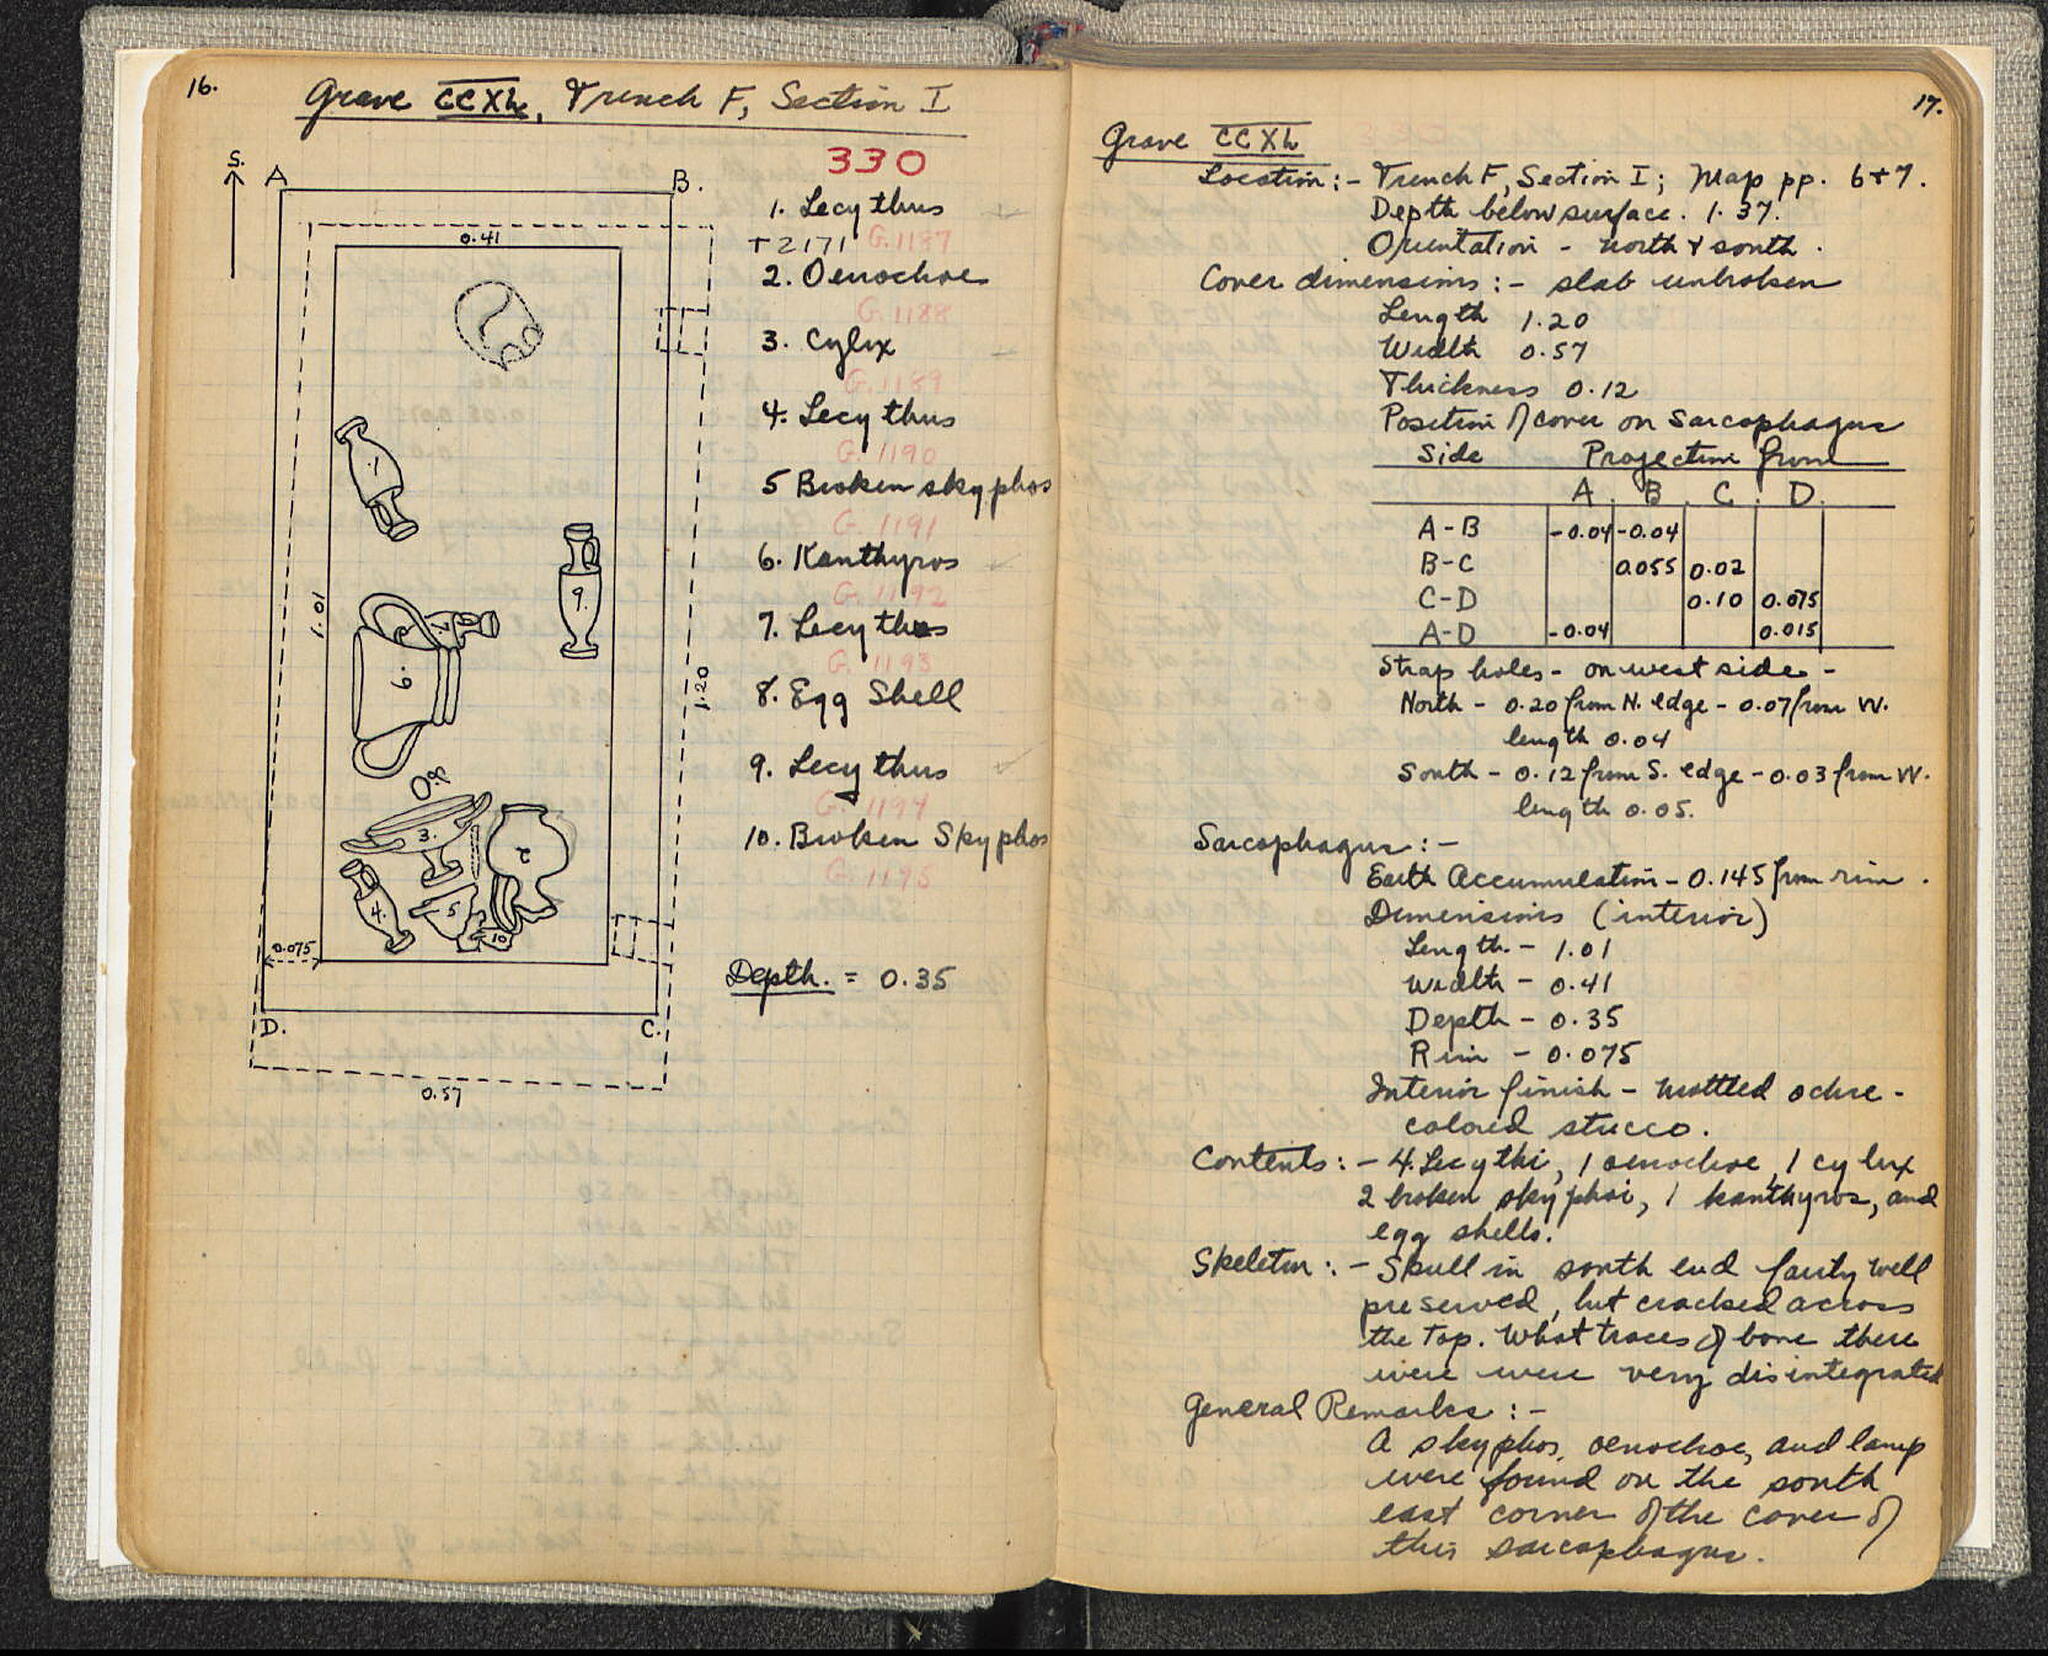 16.
Grave CCXL, Trench F, Section I
330
S.
A
B.
0.41
1.01
1.20
1.
9.
7.
6.
8.
3.
2
4.
5
10
0.075
D.
C.
0.57
1. Lecythus
T2171 G.1187
2. Oenochoe
G.1188
3. Cylix
G.1189
4. Lecythus
G.1190
5 Broken skyphos
G.1191
6. Kanthyros
G.1192
7. Lecythus
G.1193
8. Egg Shell
9. Lecythus
G.1194
10. Broken Skyphos
G.1195
Depth. = 0.35
17.
Grave CCXL
Location:- Trench F, Section I; Map pp. 6+7.
Depth below surface. 1.37.
Orientation - north & south.
Cover dimensions:- slab unbroken
Length 1.20
Width 0.57
Thickness 0.12
Position of cover on Sarcophagus
Side Projection from
A B C D
A-B -0.04 -0.04
B-C 0.055 0.02
C-D 0.10 0.075
A-D -0.04 0.015
Strap holes - on west side -
North - 0.20 from N. edge - 0.07 from W.
length 0.04
South - 0.12 from S. edge - 0.03 from W.
length 0.05.
Sarcophagus:-
Earth Accumulation - 0.145 from rim.
Dimensions (interior)
Length - 1.01
Width - 0.41
Depth - 0.35
Rim - 0.075
Interior finish - mottled ochre-
colored stucco.
Contents:- 4 Lecythi, 1 oenochoe, 1 cylix
2 broken skyphoi, 1 kanthyros, and
egg shells.
Skeleton:- Skull in south end fairly well
preserved, but cracked across
the top. What traces of bone there
were were very disintegrated
General Remarks:-
A skyphos, oenochoe, and lamp
were found on the south
east corner of the cover of
this sarcophagus.